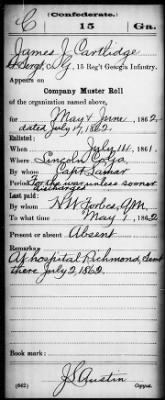 C
(Confederate.)
15
Ga.
James J Cartlidge
4 Sergt, Co. G, 15 Reg't Georgia Infantry.
Appears on
Company Muster Roll
of the organization named above,
for May & June, 1862.
dated July 17, 1862.
Enlisted:
When July 14, 1861.
Where Lincoln Co Ga
By whom Capt Lamar
Period For the war unless sooner
discharged
Last paid:
By whom H W Forbes, QM,
To what time May 1, 1862
Present or absent Absent
Remarks:
At hospital Richmond, Sent
there July 2, 1862.
Book mark:
J S Austin
(642)
Copyist.